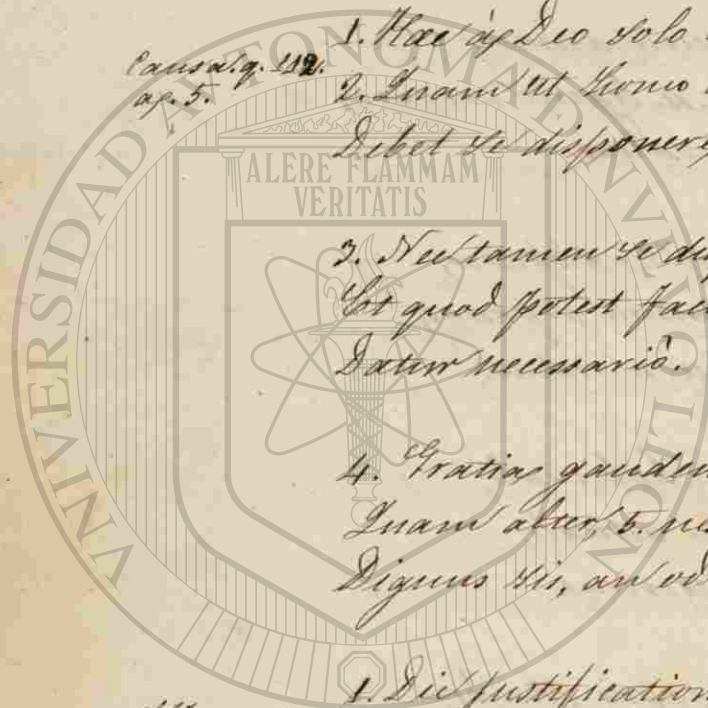 Causa. q. 112.
ap. 5.
1. Hæc à Deo solo
2. Quam ut homo
Debet se disponere
3. Nec tamen se
Et quod potest
Datur necessariò.
4. Gratia
Quam alter, 5.
Dignus sis, an
1. Dic justification
UNIVERSIDAD AUTONOMA DE NUEVO LEON
ALERE FLAMMAM
VERITATIS